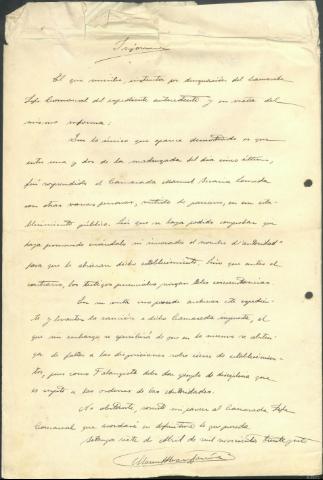 Informe
El que suscribe, instructor por designación del Camarada
Jefe Comarcal del expediente antecedente y en vista del
mismo informa:
Que lo único que aparece demostrado es que
entre una y dos de la madrugada del día cinco último,
fué sorprendido el Camarada Manuel
con otras varias personas, vestido de paisano, en un esta-
blecimiento público, sin que se haya podido comprobar que
haya promovido escándalo ni invocado el nombre d'autoridad
para que le abrieran dicho establecimiento, sino que antes al
contrario, los testigos presenciales niegan tales circunstancias.
Por su virtud uno procede archivar este expedien-
te y levantar la sanción a dicho Camarada impuesta, el
que sin embargo se apercibirá de que en lo sucesivo se absten-
ga de faltar a las disposiciones sobre cierre de establecimien-
tos, pues como Falangista debe dar ejemplo de disciplina que
es respeto a las ordenes de las Autoridades.
No obstante, somete su parecer al Camarada Jefe
Comarcal que acordará en definitiva lo que proceda
siete de Abril de mil novecientos treinta y